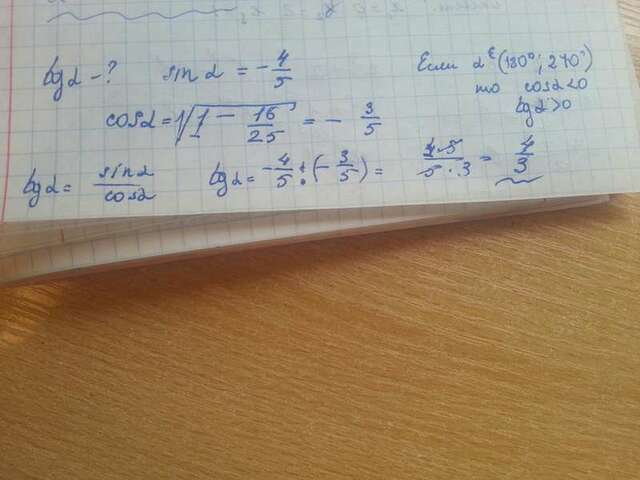 tgα - ? sin α = - 4/5
Если α ∈ (180°; 270°)
то cosα < 0
tgα > 0
cosα = √1 - 16/25 = - 3/5
tgα = sinα/cosα tgα = - 4/5 : (- 3/5) = 4·5/5·3 = 4/3